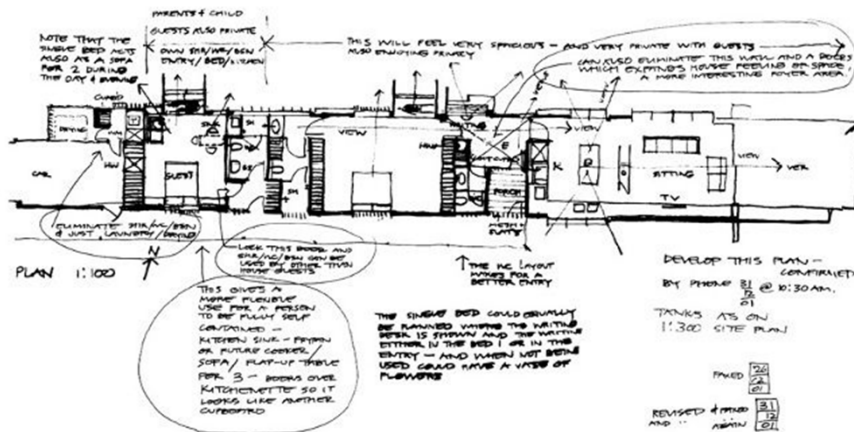 PARENTS & CHILD
GUESTS ALSO PRIVATE
OWN SHR/WC/BSN
ENTRY/BED/KITCHEN
NOTE THAT THE
SINGLE BED ACTS
ALSO AS A SOFA
FOR 2 DURING
THE DAY & EVENING
THIS WILL FEEL VERY SPACIOUS — AND VERY PRIVATE WITH GUESTS
ALSO ENJOYING PRIVACY
CAN ALSO ELIMINATE THIS WALL AND 2 DOORS
WHICH EXPANDS HOUSE FEELING OF SPACE,
A MORE INTERESTING FOYER AREA
VIEW
VIEW
VIEW
CAR
HW
GUEST
SH
SH
E
K
PORCH
SITTING
TV
ELIMINATE SHR/WC/BSN
& JUST LAUNDRY/DRYING
LOCK THIS DOOR AND
SHR/WC/BSN CAN BE
USED BY OTHER THAN
HOUSE GUESTS
N
PLAN 1:100
THE WC LAYOUT
MAKES FOR A
BETTER ENTRY
THIS GIVES A
MORE FLEXIBLE
USE FOR A PERSON
TO BE FULLY SELF
CONTAINED —
KITCHEN SINK — FRYPAN
OR FUTURE COOKER
SOFA/FLAP-UP TABLE
FOR 3 — DOORS OVER
KITCHENETTE SO IT
LOOKS LIKE ANOTHER
CUPBOARD
THE SINGLE BED COULD EQUALLY
BE PLANNED WHERE THE WRITING
DESK IS SHOWN AND THE WRITING
EITHER IN THE BED 1 OR IN THE
ENTRY — AND WHEN NOT BEING
USED COULD HAVE A VASE OF
FLOWERS
DEVELOP THIS PLAN —
CONFIRMED
BY PHONE 31 12 01 @ 10:30 AM.
TANKS AS ON
1:300 SITE PLAN
FAXED 26 12 01
REVISED & FAXED 31
AND " AGAIN 12 01